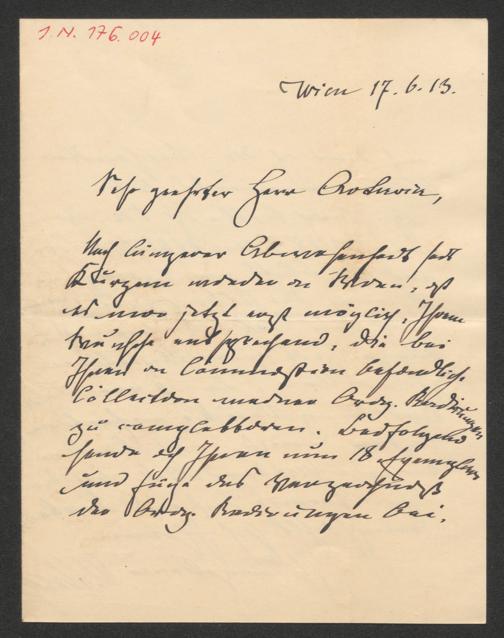 I. N. 176.004
Wien 17. 6. 13.
Sehr geehrter Herr
Nach längerer Abwesenheit seit
Kurzem wieder in Wien, ist
es mir jetzt erst möglich, Ihrem
Wunsche entsprechend, die bei
Ihnen in Commission befindliche
Collection meiner Orig. Radirungen
zu complettiren. Beifolgend
sende ich Ihnen nun 18 Exemplare
und füge das Verzeichniß
der Orig. Radirungen bei.